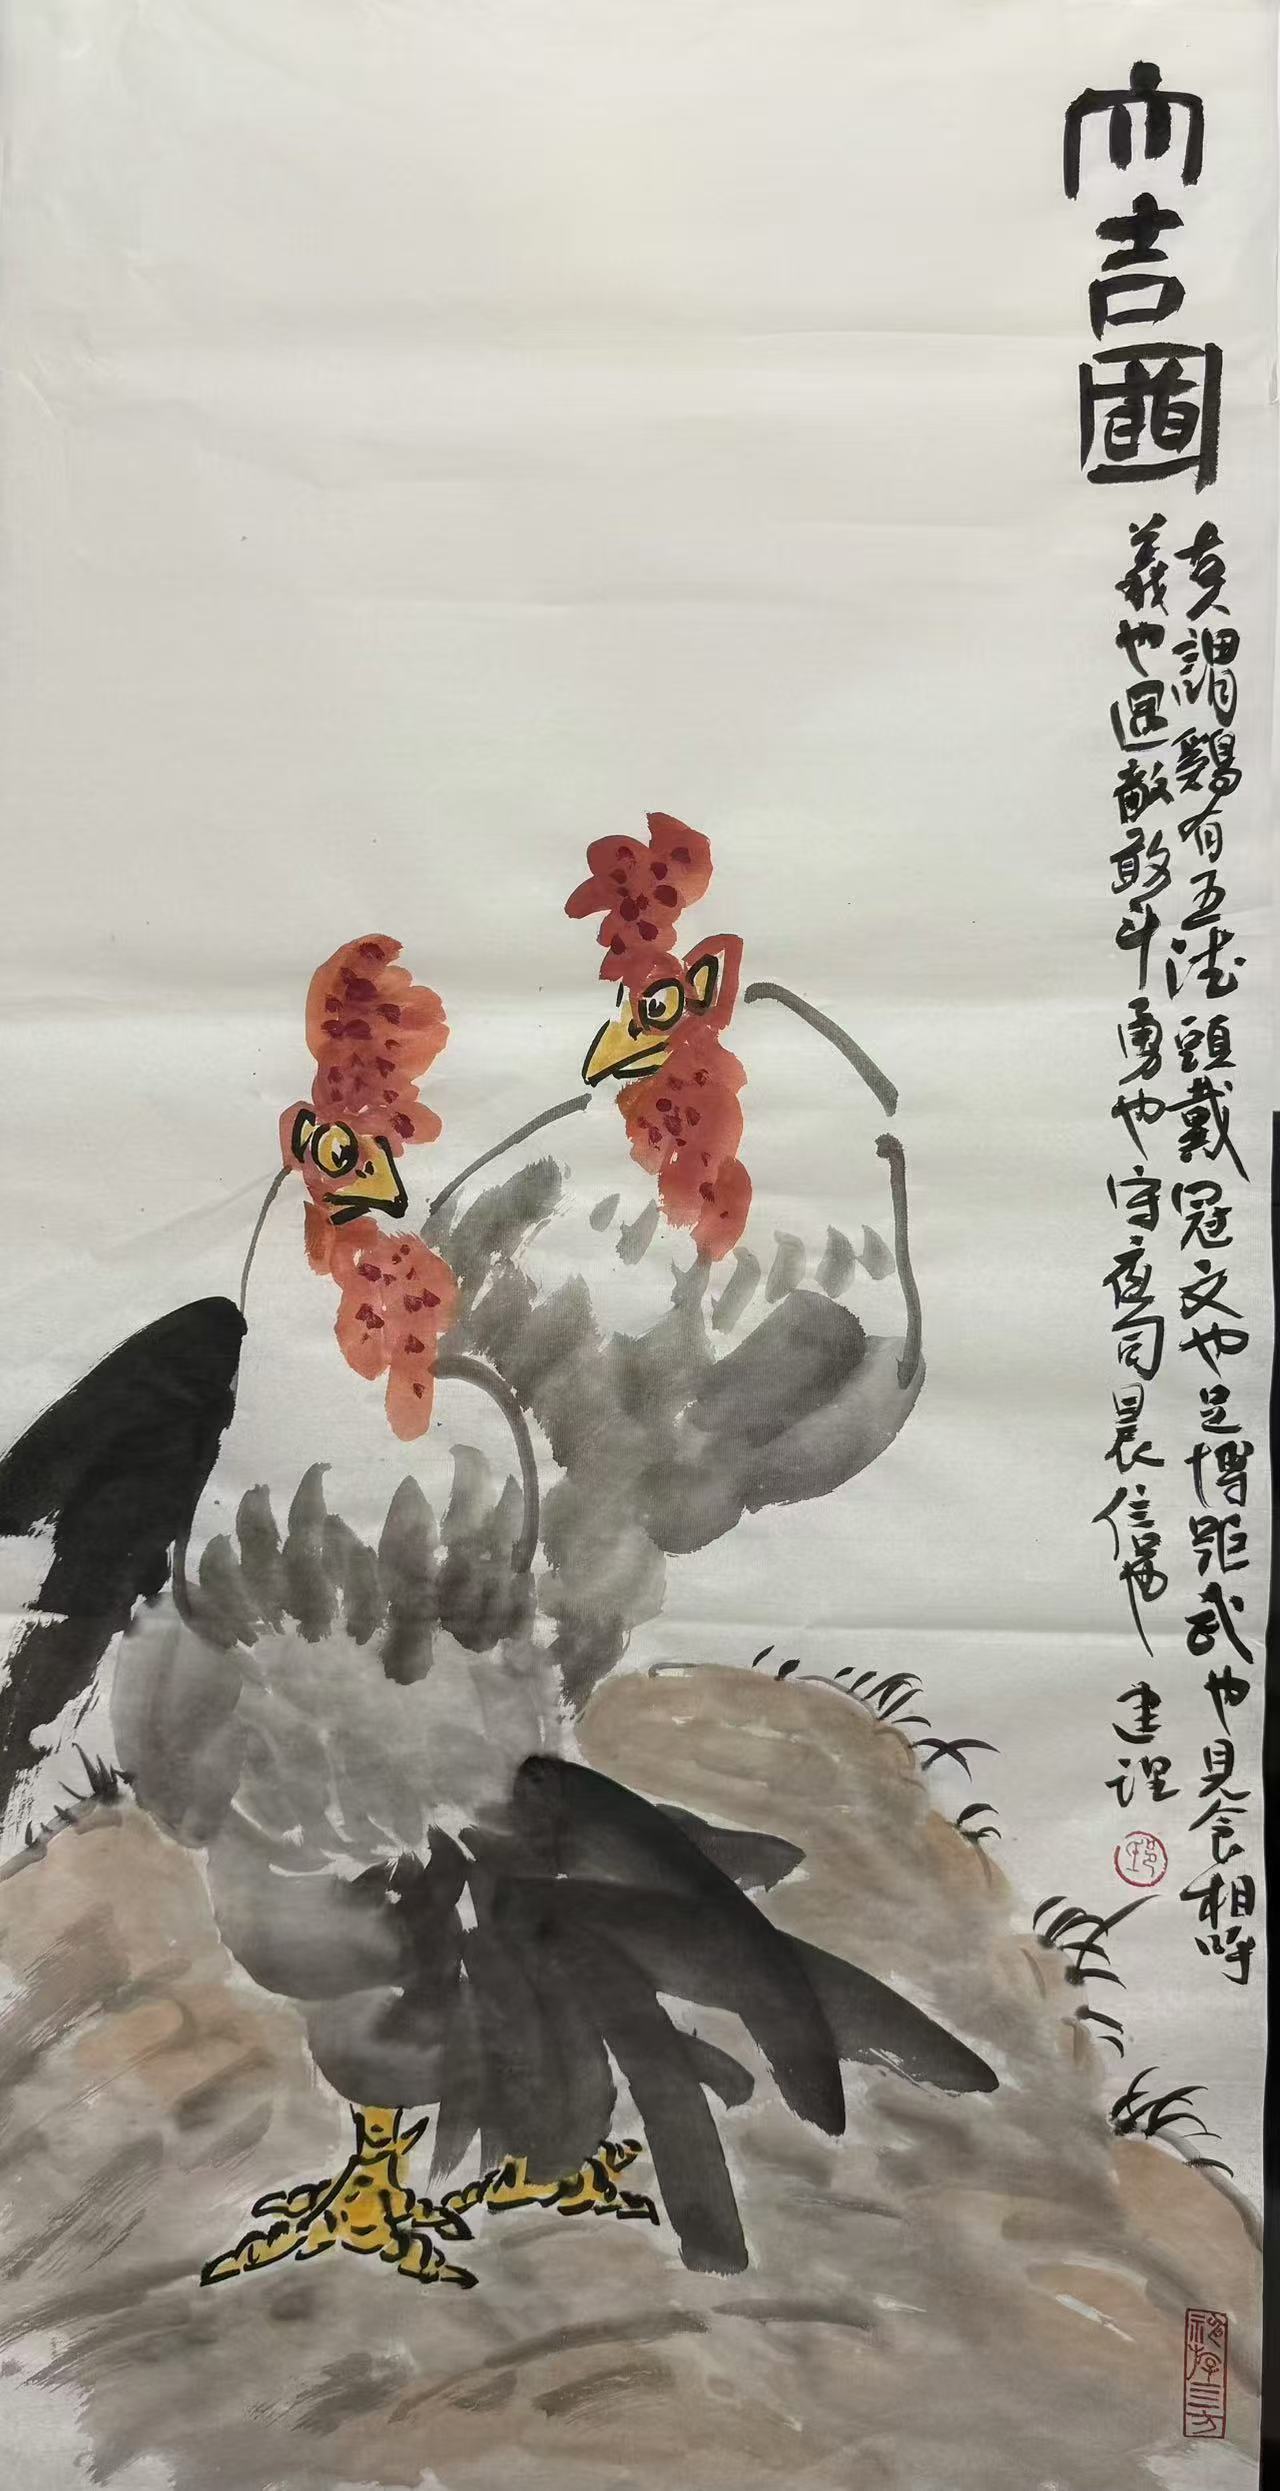 大吉圖
古人謂鷄有五德頭戴冠文也足博距武也見食相呼
義也遇敵敢斗勇也守夜司晨信也
建理